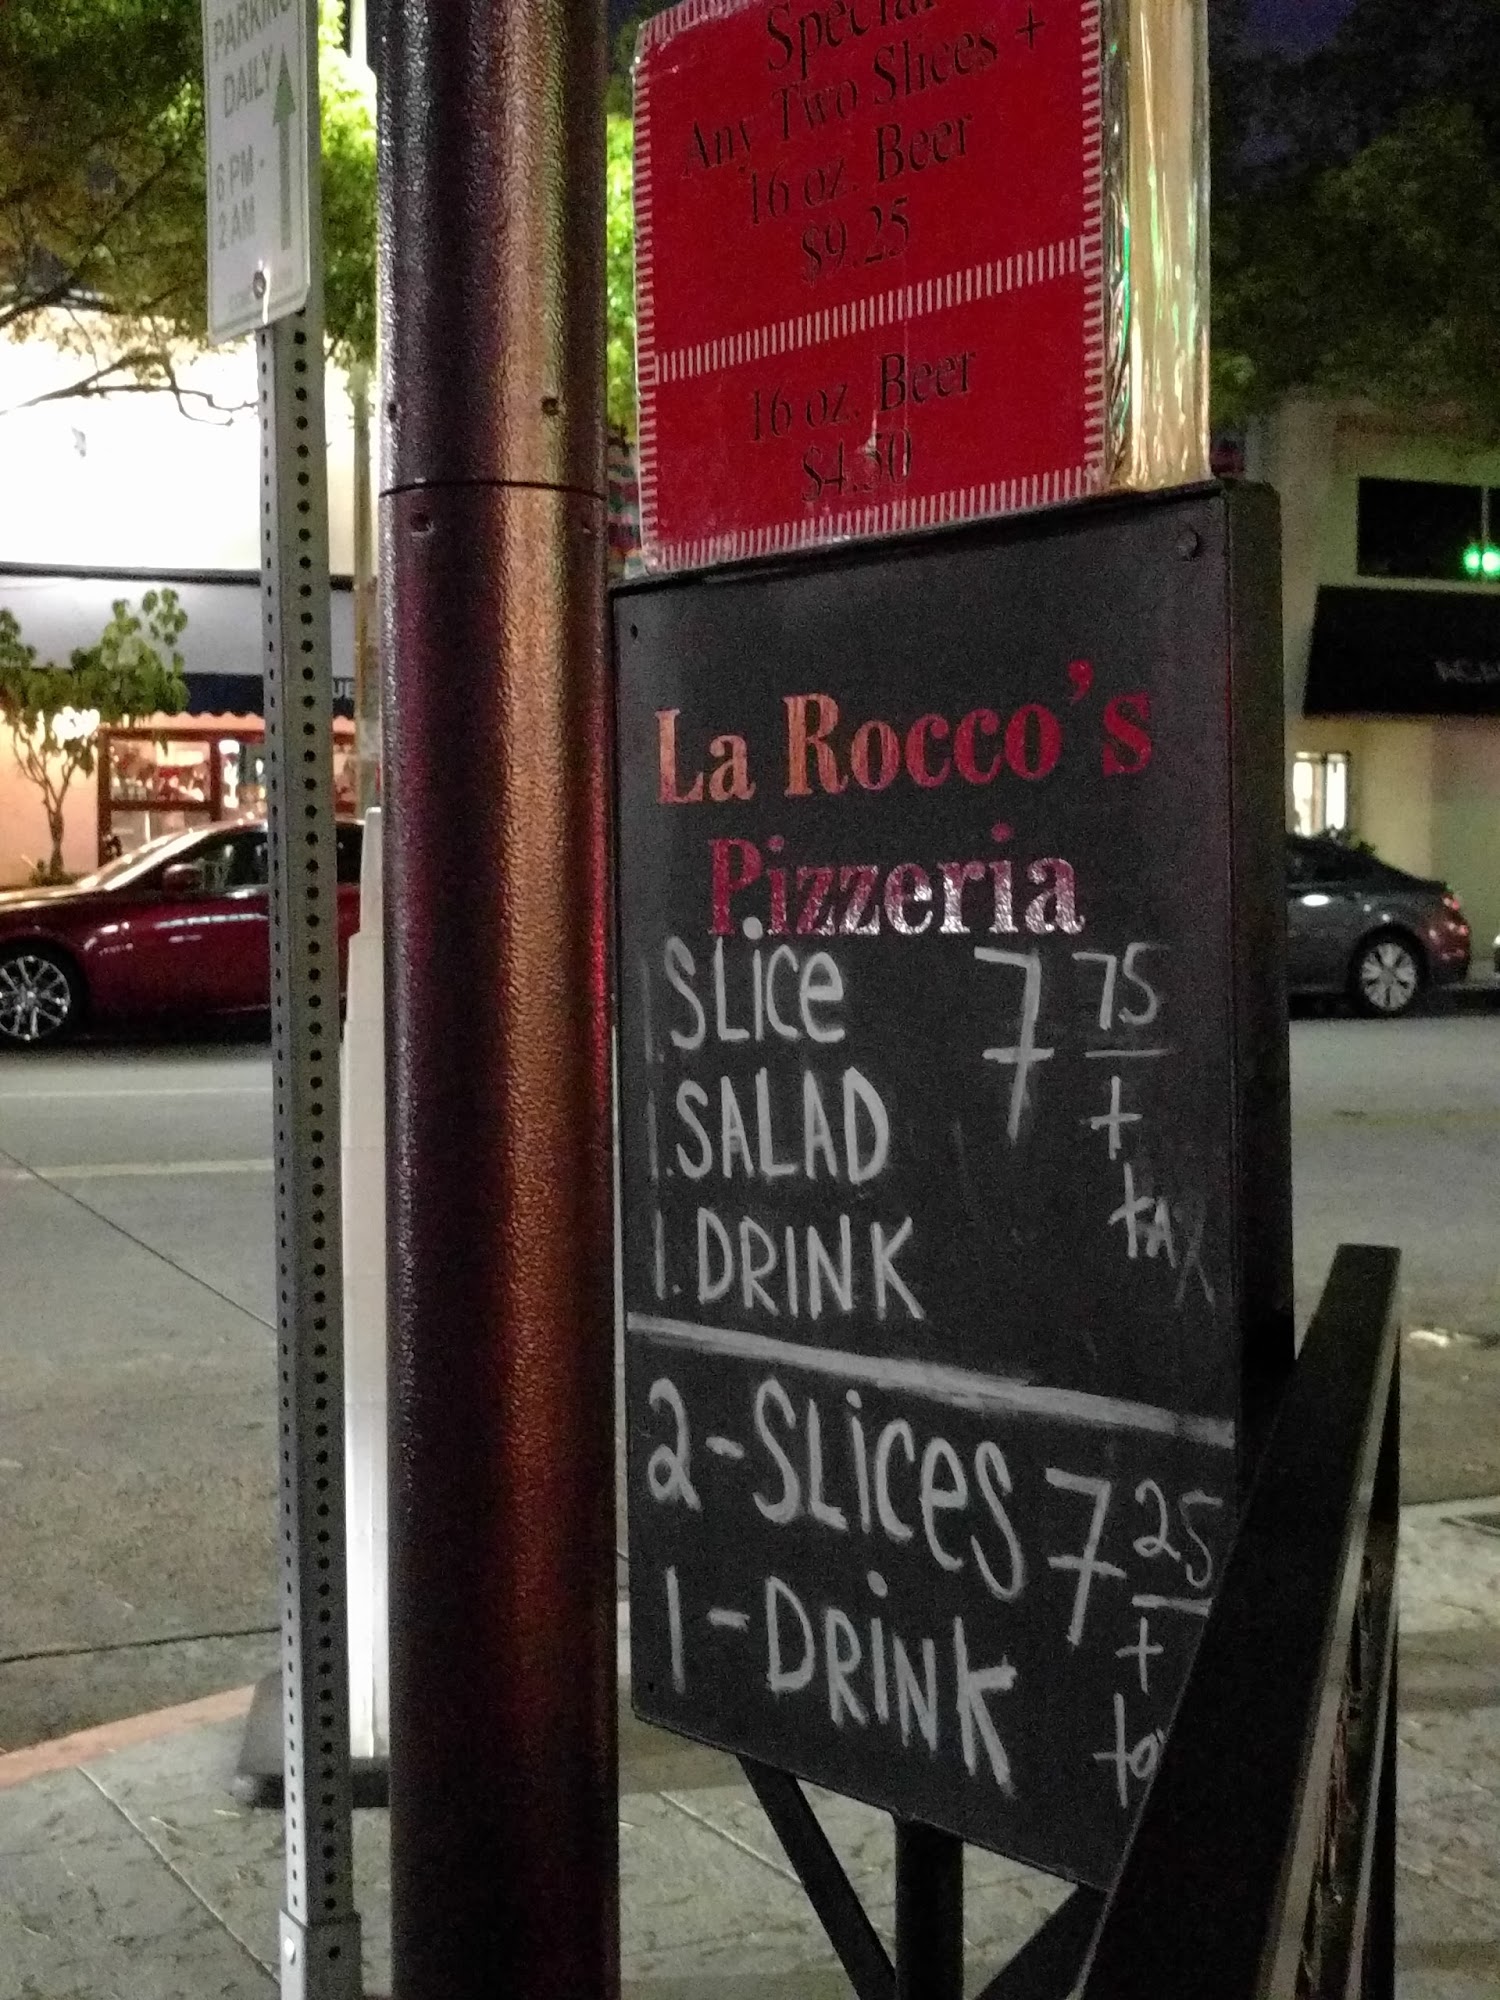 PARKING
DAILY
6 PM -
2 AM
Special
Any Two Slices +
16 oz. Beer
$9.25
16 oz. Beer
$4.50
La Rocco's
Pizzeria
1. SLice 7 75
1. SALAD +
1. DRINK tAX
2-SLiceS 7 25
1-DRiNK +